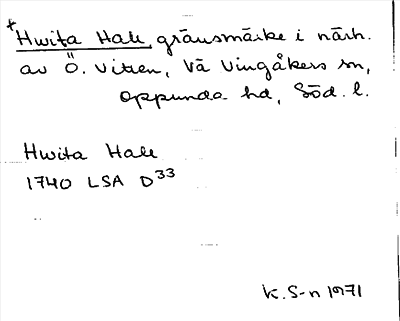 +
Hwita Hall, gränsmärke i närh.
av Ö. Vitten, Vä Vingåkers sn,
Oppunda hd, Söd. l.
Hwita Hall
1740 LSA D33
K. S-n 1971